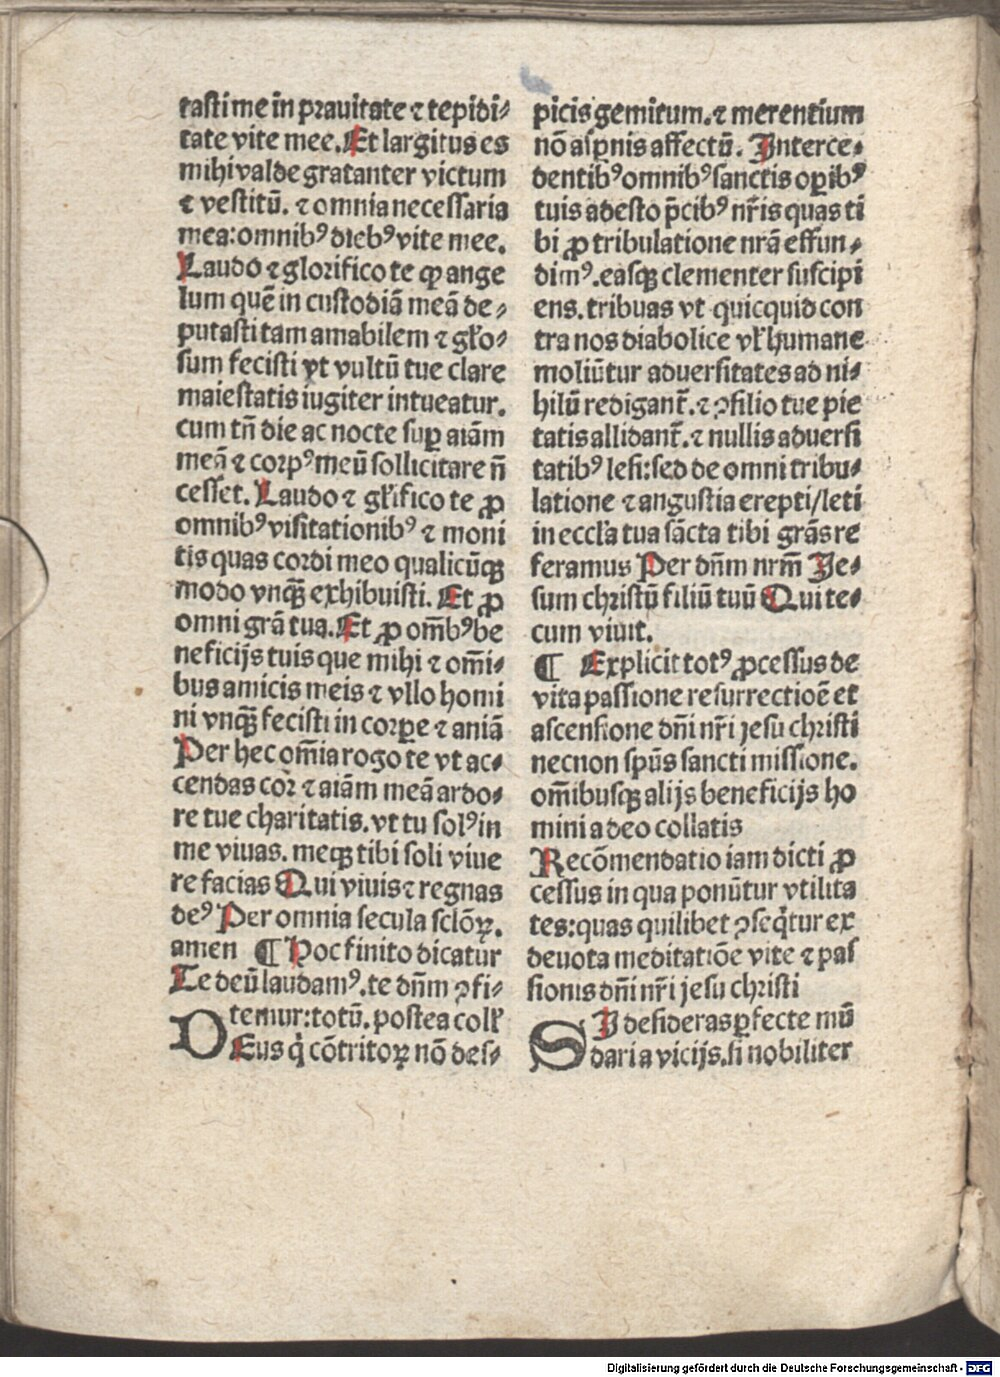 tasti me in prauitate ⁊ tepidi⸗
tate vite mee. Et largitus es
mihi valde gratanter victum
⁊ vestitū. ⁊ omnia necessaria
mea: omnibꝰ diebꝰ vite mee.
Laudo ⁊ glorifico te ꝙ ange
lum quē in custodiā meā de⸗
putasti tam amabilem ⁊ gło⸗
sum fecisti vt vultū tue clare
maiestatis iugiter intueatur.
cum tñ die ac nocte suꝑ aiām
meā ⁊ corpꝰ meū sollicitare ñ
cesset. Laudo ⁊ głifico te ꝓ
omnibꝰ visitationibꝰ ⁊ moni
tis quas cordi meo qualicūqꝫ
modo vnqꝫ̄ exhibuisti. Et ꝓ
omni grā tua. Et ꝓ om̄bꝰ be
neficijs tuis que mihi ⁊ om̄i⸗
bus amicis meis ⁊ vllo homi
ni vnqꝫ̄ fecisti in corꝑe ⁊ aniā
Per hec om̄ia rogo te vt ac⸗
cendas cor ⁊ aiām meā ardo⸗
re tue charitatis. vt tu solꝰ in
me viuas. meqꝫ tibi soli viue
re facias Qui viuis ⁊ regnas
deꝰ Per omnia secula sclōꝝ.
amen ¶ Hoc finito dicatur
Te deū laudamꝰ. te dn̄m ꝯfi⸗
temur: totū. postea colł
DEus q̇ cōtritoꝝ nō des⸗
picis gemitum. ⁊ merentium
nō asꝑnis affectū. Interce⸗
dentibꝰ omnibꝰ sanctis oꝑibꝰ
tuis adesto p̄cibꝰ nr̄is quas ti
bi ꝓ tribulatione nrā effun⸗
dimꝰ. easqꝫ clementer suscipi
ens. tribuas vt quicquid con
tra nos diabolice vł humane
moliūtur aduersitates ad ni⸗
hilū redigant̄. ⁊ ꝯsilio tue pie
tatis allidant̄. ⁊ nullis aduersi
tatibꝰ lesi: sed de omni tribu⸗
latione ⁊ angustia erepti/leti
in eccła tua sācta tibi grās re
feramus Per dn̄m nrm̄ Je⸗
sum christū filiū tuū Qui te⸗
cum viuit.
¶ Explicit totꝰ ꝓcessus de
vita passione resurrectioē et
ascensione dn̄i nr̄i jesu christi
necnon spūs sancti missione.
om̄ibusqꝫ alijs beneficijs ho
mini adeo collatis
Recōmendatio iam dicti ꝓ
cessus in qua ponūtur vtilita
tes: quas quilibet ꝯseq̇tur ex
deuota meditatiōe vite ⁊ pas
sionis dn̄i nr̄i jesu christi
SI desideras ꝑfecte mū
dari a vicijs. si nobiliter
Digitalisierung gefördert durch die Deutsche Forschungsgemeinschaft - DFG